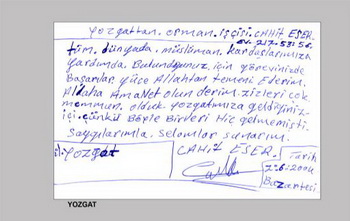 Yozgattan. orman. işçisi. CAHİT ESER.
tüm. dünyada. müslüman. kardaşlarımıza
yardımda. Bulunduğunuz. için görevinizde
Başarılar. yüce Allahtan temeni Ederim.
Allaha AmaNet olun derim. sizleri çok
memnun. olduk yozgatımıza geldiğiniz.
içi. çünkü Böyle Birileri Hiç gelmemişti.
saygılarımla. selamlar sunarım.
CAHİT ESER. Tarih
il: YOZgat
2:6:2004
Pazartesi
YOZGAT